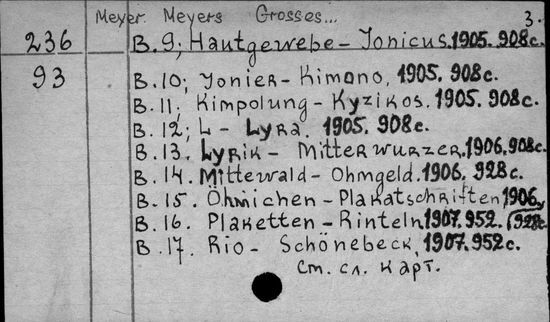 Meyer. Meyers Grosses... 3.
236 B. 9; Hautgewebe – Jonicus. 1905. 908с.
93 B. 10; Jonier – Kimono, 1905. 908с.
B. 11; Kimpolung – Kyzikos. 1905. 908с.
B. 12; L – Lyra. 1905. 908с.
B. 13. Lyrik – Mitterwurzer. 1906. 908с.
B. 14. Mittewald – Ohmgeld. 1906. 928с.
B. 15. Öhmichen – Plakatschriften 1906,
B. 16. Plaketten – Rinteln, 1907. 952. (928с.
B. 17. Rio – Schönebeck, 1907. 952с.
Cm. сл. карт.